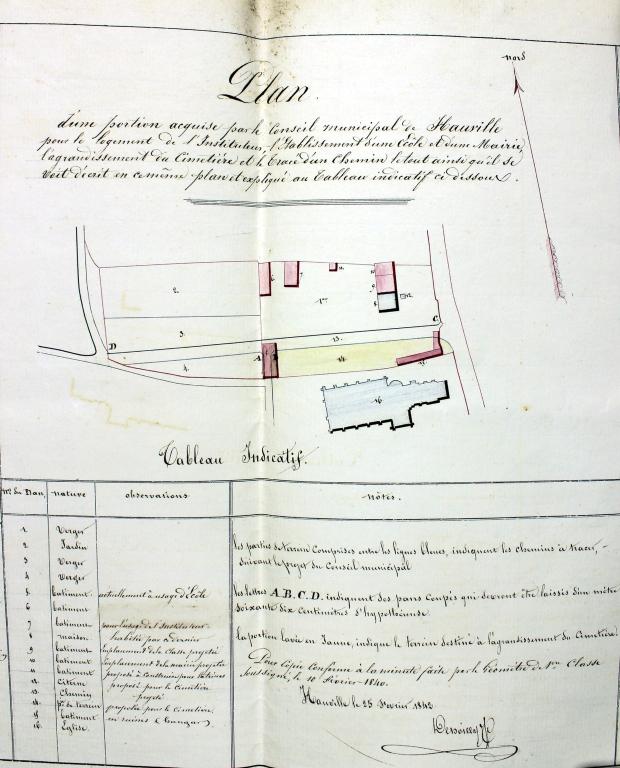 Nord
Plan.
d'une portion acquise par le Conseil municipal de Hauville
pour le logement de l'Instituteur, l'Etablissement d'une École et d'une Mairie,
l'agrandissement du Cimetière et le Tracé d'un Chemin le tout ainsi qu'il se
voit décrit en ce même plan et expliqué au Tableau indicatif ci dessous.
Tableau Indicatif.
Nos. du Plan, nature observations nôtes.
1 Verger
2 Jardin
3 Verger
4 Verger
5 batiment actuellement à usage d'École
6 batiment
7 batiment pour l'usage de l'Instituteur
8 maison habitée par ce dernier
9 batiment emplacement de la classe projetée
10 batiment emplacement de la mairie projetée
11 batiment proposé à Construire pour latrines
12 Citerne proposé pour le Cimetière
13 Chemin projeté
14 Pon. de terrein proposée pour le Cimetière
15 batiment en ruines (hangar)
16 Église
les parties de terrein comprises entre les lignes bleues, indiquent les chemins à tracer,
suivant le projet du Conseil municipal
les lettres A.B.C.D. indiquent des pans Coupés qui devront être laissés d'un mètre
soixante dix Centimètres d'hypoténuse.
la portion lavée en Jaune, indique le terrein destiné à l'agrandissement du Cimetière.
Pour Copie Conforme à la minute faite par le Géomètre de 1ère Classe
soussigné, le 10 Février 1840.
Hauville le 25 Fevrier 1842